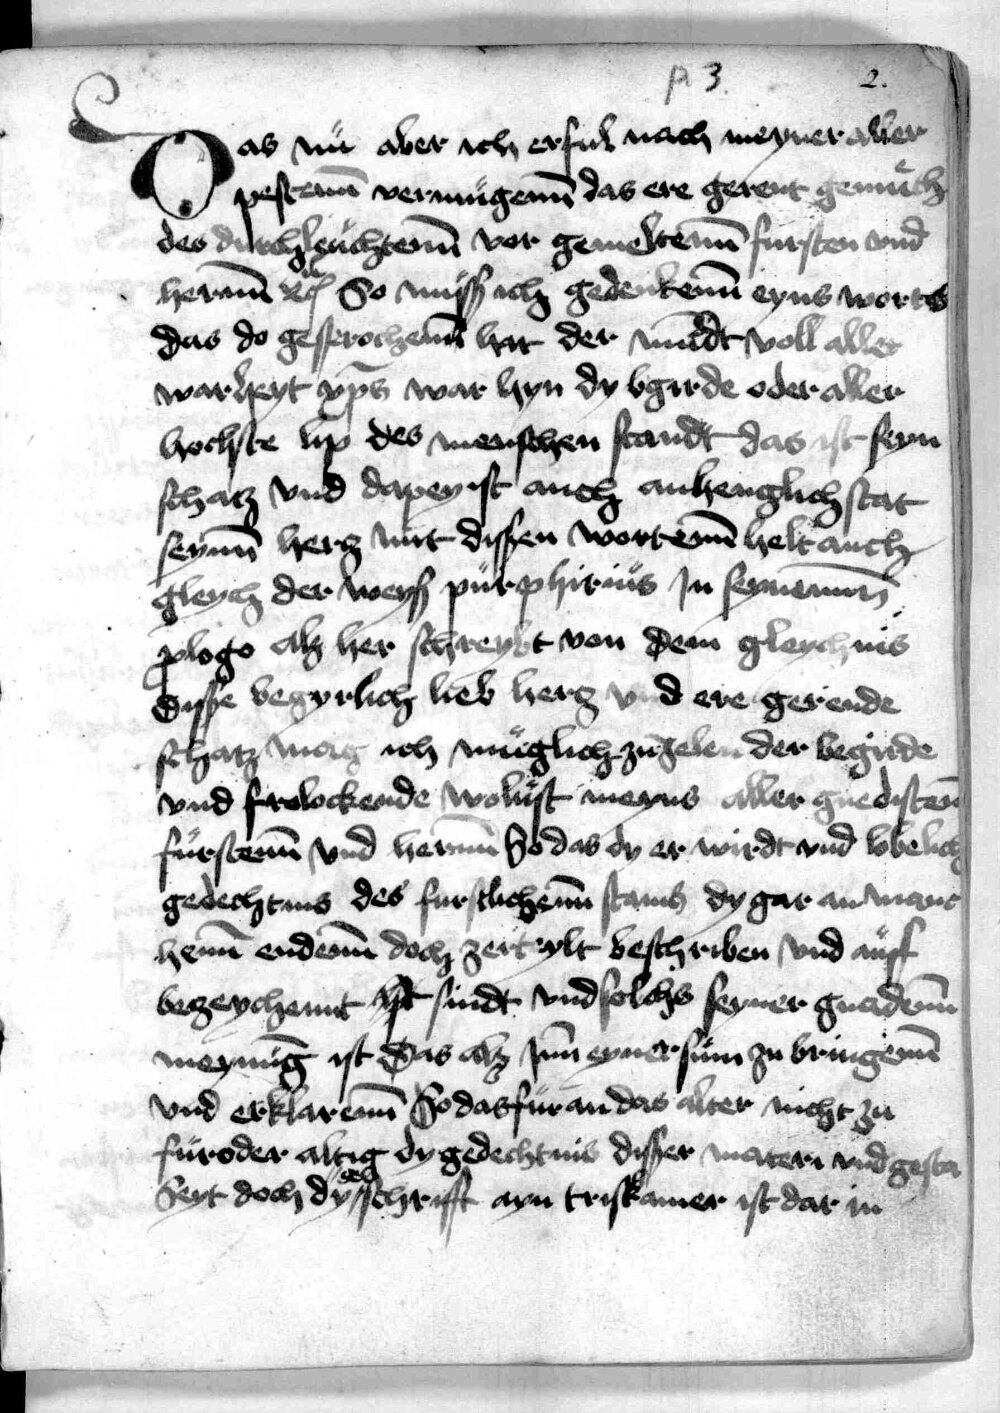 p 3 2.
Das nu aber ich erful nach meyner aller
pestenn vermugenn das ere gerent gemuth
des durchleuchtenn vor gemeltenn fursten vnd
herrnn etc So muss ich gedenkenn eyns worts
das do gesprochenn hat der mundt voll aller
warheyt xps war hyn dy bgirde oder aller
hochste lip des menschen standt das ist seyn
schatz vnd dapey ist auch anhenglich stat
seynn hercz mit dissen wortenn helt auch
gleych der weyss purphirius In seynemm
plogo alz her schreybt von dem gleychnis
disse begyrlich lieb hercz vnd ere gerende
schatz mag ich muglich zu zelen der begirde
vnd frolockende wolust meyns aller gnedisten
furstenn vnd herrnn So das dy er wirdt vnd lobelich
gedechtnis des furstlichenn stams dy gar an manc
henn endenn doch zerteylt beschriben vnd auff
bezeychennt sindt vnd solchs seyner gnadenn
meynung ist das alz Inn eyner sum zu bringenn
vnd erklarenn So das fur an das alter nicht zu
furoder altig dy gedechtnis disser materi vnd gesta
Seyt doch dy schrifft ayn triskamer ist dar in